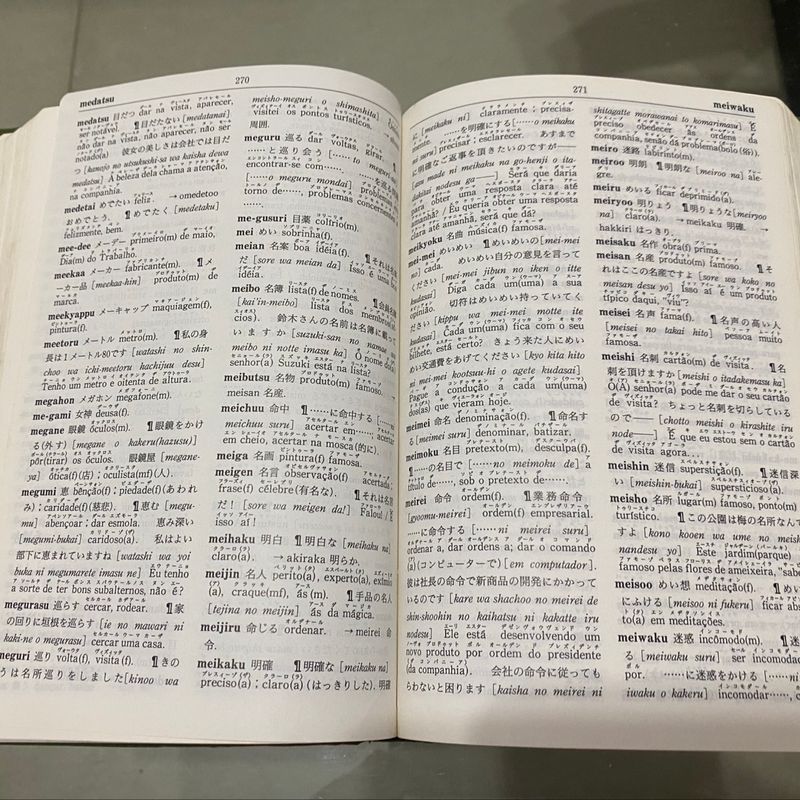 270
medatsu
medatsu 目だつ dar na vista, aparecer,
ser notável. ¶目だたない [medatanai]
não dar na vista, não aparecer, não ser
notado(a) 彼女の美しさは会社では目だ
つ [kanojo no utsukushi-sa wa kaisha dewa
medatsu] A beleza dela chama a atenção.
na companhia.
medetai めでたい feliz. → omedetoo
おめでとう. ¶めでたく [medetaku]
felizmente, bem.
mee-dee メーデー primeiro(m) de maio,
Dia(m) do Trabalho.
meekaa メーカー fabricante(m). ¶メ
ーカー品 [meekaa-hin] produto(m) de
marca.
meekyappu メーキャップ maquiagem(f.),
pintura(f).
meetoru メートル metro(m). ¶私の身
長は1メートル80です [watashi no shin-
choo wa ichi-meetoru hachijuu desu]
Tenho um metro e oitenta de altura.
megahon メガホン megafone(m).
me-gami 女神 deusa(f).
megane 眼鏡 óculos(m). ¶眼鏡をかけ
る(外す) [megane o kakeru(hazusu)]
pôr(tirar) os óculos. 眼鏡屋 [megane-
ya] ótica(f)(店); oculista(mf)(人).
megumi 恵 bênção(f); piedade(f)(あわれ
み); caridade(f)(慈悲). ¶恵む [megu-
mu] abençoar; dar esmola. 恵み深い
[megumi-bukai] caridoso(a). 私はよい
部下に恵まれていますね [watashi wa yoi
buka ni megumarete imasu ne] Eu tenho
a sorte de ter bons subalternos, não é?
megurasu 巡らす cercar, rodear. ¶家
の回りに垣根を巡らす [ie no mawari ni
kaki-ne o megurasu] cercar uma casa.
meguri 巡り volta(f), visita(f). ¶きの
うは名所巡りをしました [kinoo wa
meisho-meguri o shimashita]
visitei os pontos turísticos.
周囲.
meguru 巡る dar voltas,
……と巡り会う […… to meguri
encontrar-se com……
o meguru mondai]
torno de……, problemas concernentes
me-gusuri 目薬 colírio(m).
mei めい sobrinha(f).
meian 名案 boa idéia(f). ¶それは名
だ [sore wa meian da] Isso é uma
idéia.
meibo 名簿 lista(f) de nomes. ¶会員名
[kai'in-meibo] lista dos membros
cios). 鈴木さんの名前は名簿に載って
いますか [suzuki-san no namae
meibo ni notte imasu ka] O nome do(a)
senhor(a) Suzuki está na lista?
meibutsu 名物 produto(m) famoso.
meisan 名産.
meichuu 命中 ¶……に命中する [……
meichuu suru] acertar em……, acertar
em cheio, acertar na mosca(的に).
meiga 名画 pintura(f) famosa.
meigen 名言 observação(f) acertada;
frase(f) célebre(有名な). ¶それは名言
だ! [sore wa meigen da!] Falou! / É
isso aí!
meihaku 明白 ¶明白な [meihaku na]
claro(a). → akiraka 明らか.
meijin 名人 perito(a), experto(a), exímio
(a), craque(mf), ás(m). ¶手品の名人
[tejina no meijin] ás da mágica.
meijiru 命じる ordenar. → meirei 命
令.
meikaku 明確 ¶明確な [meikaku na]
preciso(a); claro(a) (はっきりした). 明確
271
meiwaku
に [meikaku ni] claramente; precisa-
……を明確にする [……o meikaku
ni suru] precisar; esclarecer. あすまで
に明確なご返事を頂きたいのですが——
[asu made ni meikaku na go-henji o ita-
dakitai nodesu ga——] Será que daria
para obter uma resposta clara até
amanhã? / Eu queria obter uma resposta
até amanhã, será que dá?
meikyoku 名曲 música(f) famosa.
mei-mei めいめい ¶めいめいの [mei-mei
no] cada. めいめい自分の意見を言って
ください [mei-mei jibun no iken o itte
kudasai] Diga cada um(a) a sua
opinião. 切符はめいめい持っていてく
ださい [kippu wa mei-mei motte ite
kudasai] Cada um(a) fica com o seu
bilhete, está certo? きょう来た人にめい
めい交通費をあげてください [kyo kita hito
ni mei-mei kootsuu-hi o agete kudasai]
Pague a condução a cada um(a)
dos(as) que vieram hoje.
meimei 命名 denominação(f). ¶命名す
る [meimei suru] denominar, batizar.
meimoku 名目 pretexto(m), desculpa(f).
¶……の名目で [……no meimoku de] a
título de……, sob o pretexto de……
meirei 命令 ordem(f). ¶業務命令
[gyoomu-meirei] ordem(f) empresarial.
……に命令する [……ni meirei suru]
ordenar a, dar ordens a; dar o comando
(a)(コンピューターで) [em computador].
彼は社長の命令で新商品の開発にかかって
いるのです [kare wa shachoo no meirei de
shin-shoohin no kaihatsu ni kakatte iru
nodesu] Ele está desenvolvendo um
novo produto por ordem do presidente
(da companhia). 会社の命令に従っても
らわないと困ります [kaisha no meirei ni
shitagatte morawanai to komarimasu] É
preciso obedecer às ordens da
companhia, senão dá problema(bolo (俗)).
meiro 迷路 labirinto(m).
meiroo 明朗 ¶明朗な [meiroo na] ale-
gre.
meiru めいる ficar deprimido(a).
meiryoo 明りょう ¶明りょうな [meiryoo
na] claro(a). → meikaku 明確. →
hakkiri はっきり.
meisaku 名作 obra(f) prima.
meisan 名産 produto(m) famoso. ¶そ
れはここの名産ですよ [sore wa koko no
meisan desu yo] Isso aí é um produto
típico daqui, "viu"?
meisei 名声 fama(f). ¶名声の高い人
[meisei no takai hito] pessoa muito
famosa.
meishi 名刺 cartão(m) de visita. ¶名
刺を頂けますか [meishi o itadakemasu ka]
O(A) senhor(a) pode me dar o seu cartão
de visita? ちょっと名刺を切らしている
ので—— [chotto meishi o kirashite iru
node——] É que eu estou sem o cartão
de visita agora....
meishin 迷信 superstição(f). ¶迷信深
い [meishin-bukai] supersticioso(a).
meisho 名所 lugar(m) famoso, ponto(m)
turístico. ¶この公園は梅の名所なんで
すよ [kono kooen wa ume no meisho
nandesu yo] Este jardim(parque) é
famoso pelas flores de ameixeira, "sabe
meisoo めい想 meditação(f).
にふける [meisoo ni fukeru] ficar abso
to(a) em meditações.
meiwaku 迷惑 incômodo(m).
る [meiwaku suru] ser incomodado
por. ……に迷惑をかける [……ni
meiwaku o kakeru] incomodar